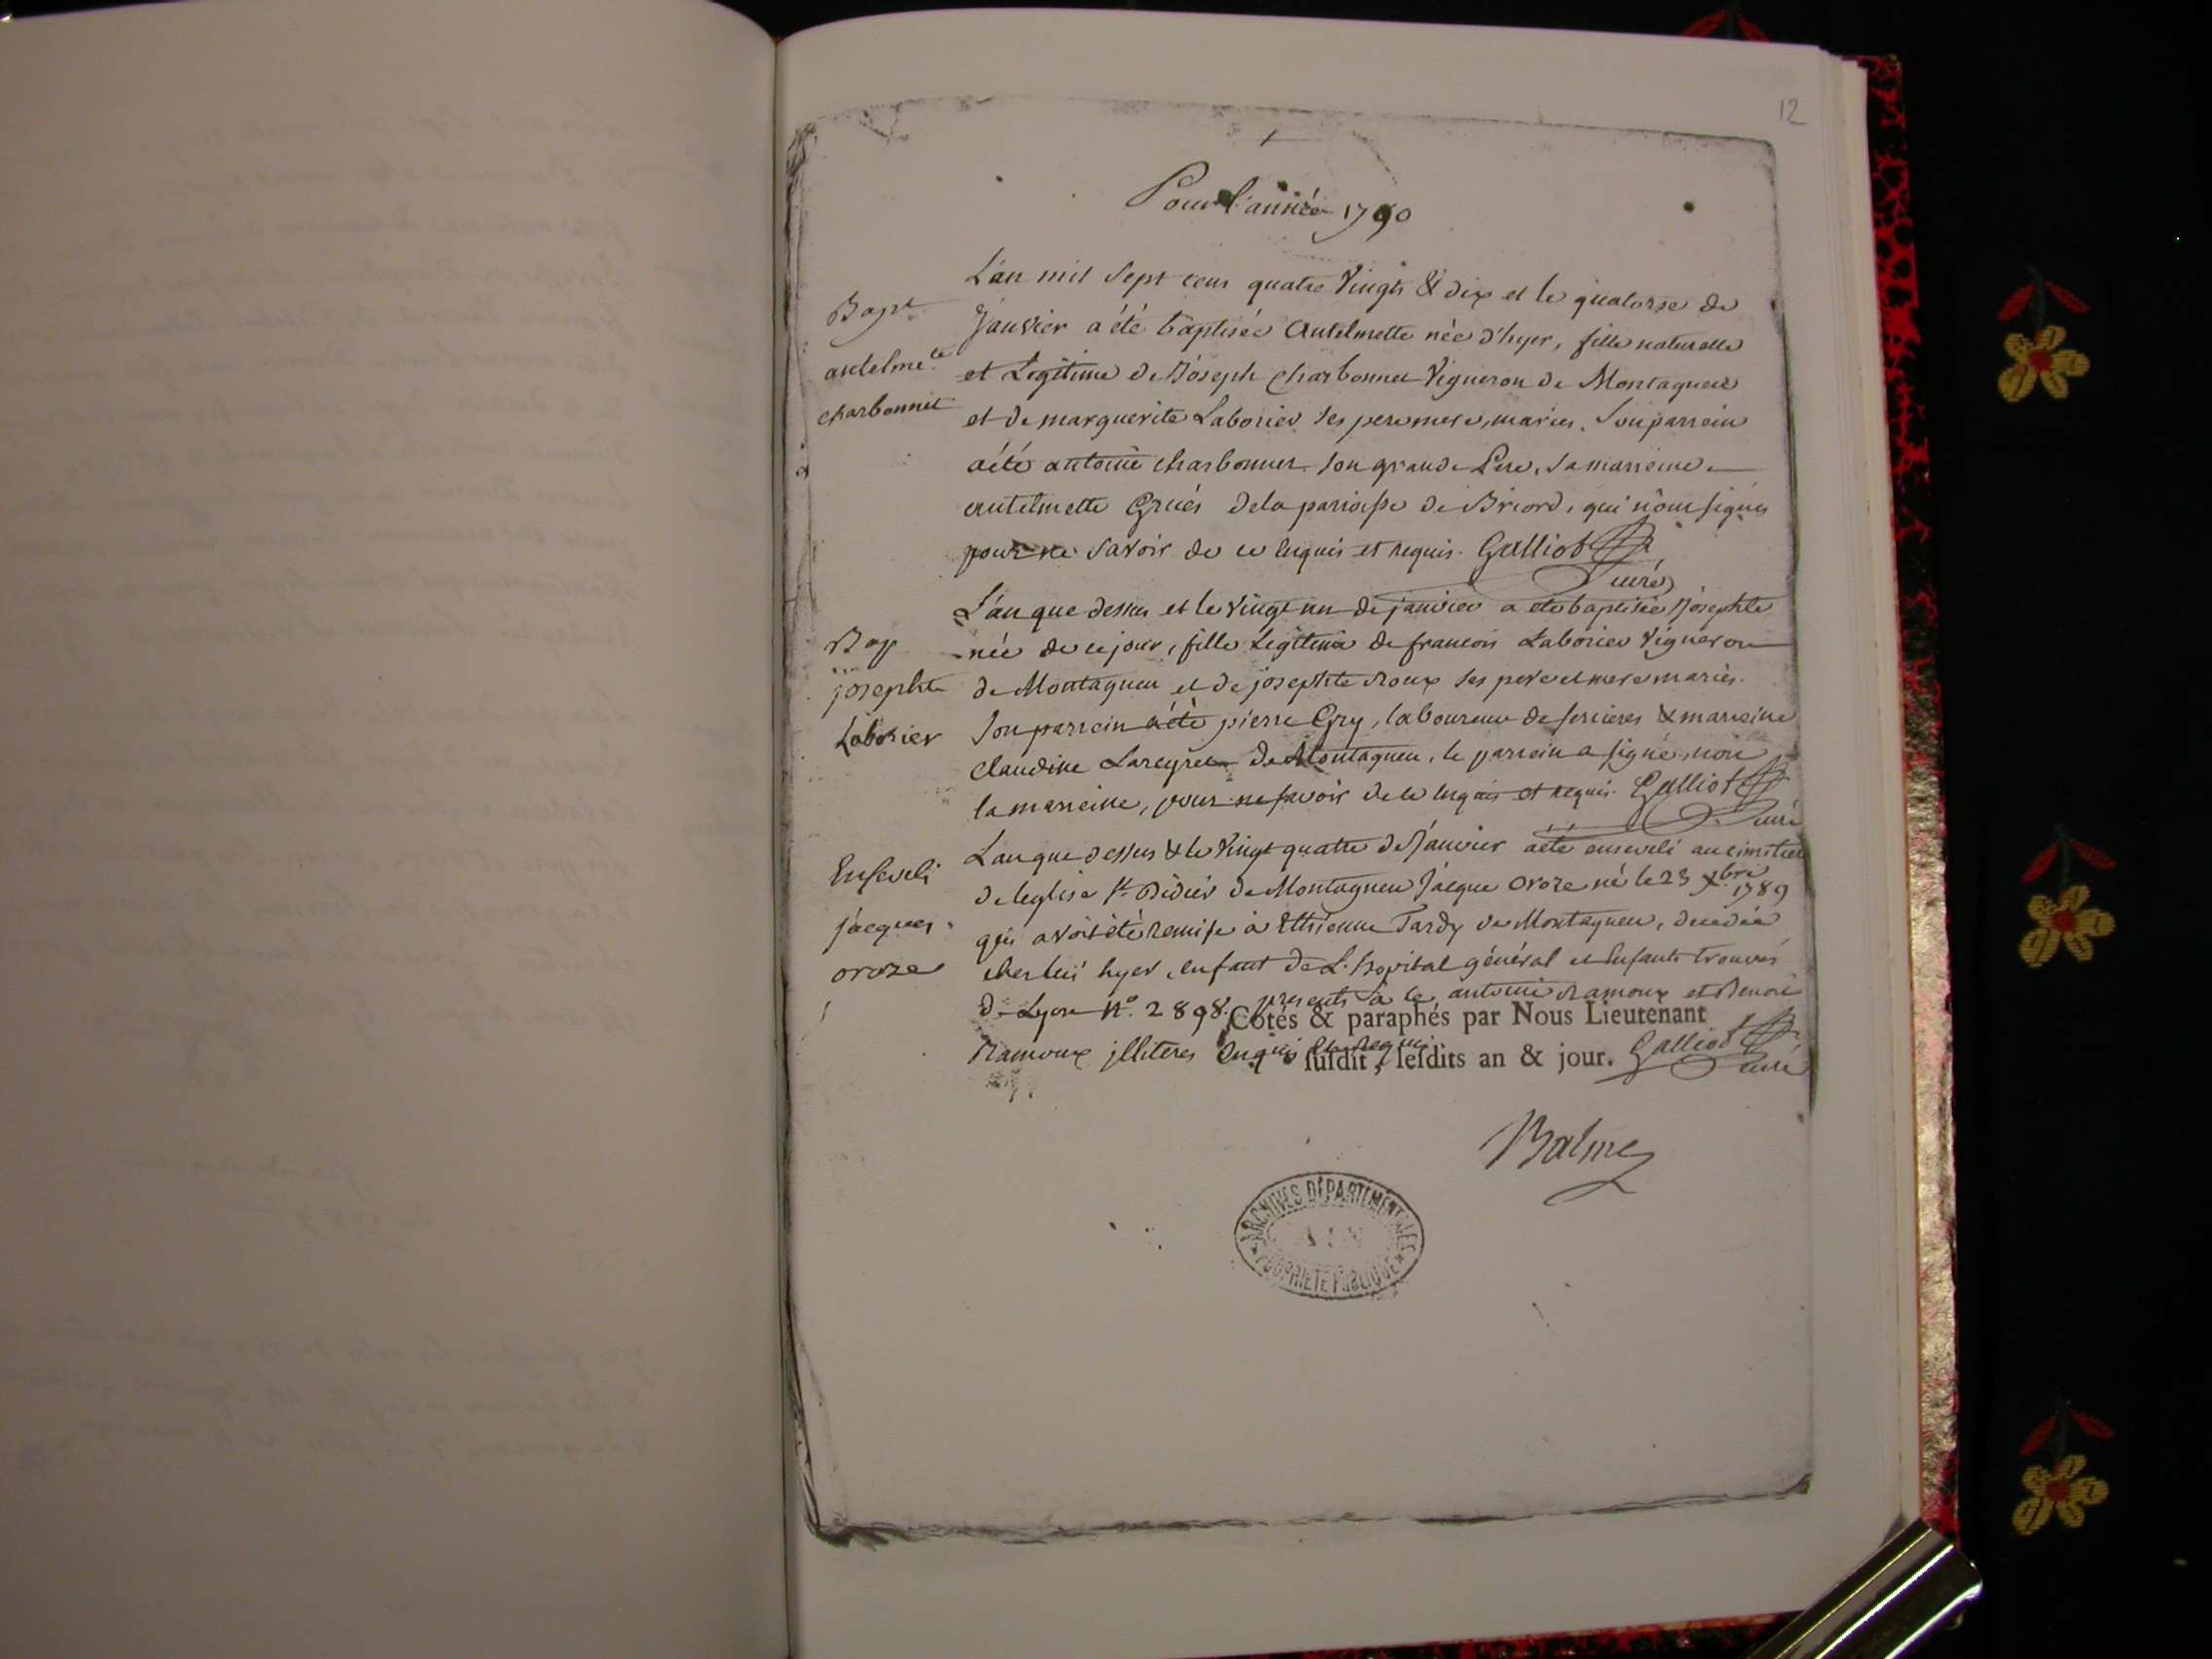 12
Pour l'année 1790
Bapt
antelme.te
charbonnet
L'an mil sept cens quatre Vingts & dix et le quatorse de
Janvier a été baptisée Antelmette née d'hyer, fille naturelle
et Legitime de Joseph charbonnet Vigneron de Montagneu
et de marguerite Laborier ses pere mere, maries. Son parrein
a été antoine charbonnet son grande Pere, sa marreine
antelmette Gruës dela paroisse de Briord, qui n'ont signés
pour ne savoir de ce enquis et requis. Galliot
curé
Bap
josephte
Laborier
L'an que dessus et le vingt un de janvier a ete baptisée Josephte
née de ce jour, fille Légitime de francois Laborier Vigneron
de Montagneu et de josephte Roux ses pere et mere mariés.
Son parrein a été pierre Gry, laboureur de serrieres & marreine
claudine Lareyret de Montagneu, le parrein a signé, non
la marreine, pour ne savoir de ce enquis et requis. Galliot
curé
Enseveli
jacques
oroze
L'an que dessus & le Vingt quatre de Janvier a été enseveli au cimitier
de leglise St. Didier de Montagneu Jacque Oroze né le 23 xbre 1789
qui avoit été remise à Ethienne Tardy de Montagneu, decedée
chez lui hyer, enfant de L'hopital général et Enfants trouvés
de Lyon N.o 2898. presents à ce, antoine Ramoux et Benoit
Cotés & paraphés par Nous Lieutenant
Ramoux illiteres Enquis & Requis. Galliot
susdit, lesdits an & jour.
curé
Balme
ARCHIVES DÉPARTEMENTALES
AIN
PROPRIETE PUBLIQUE